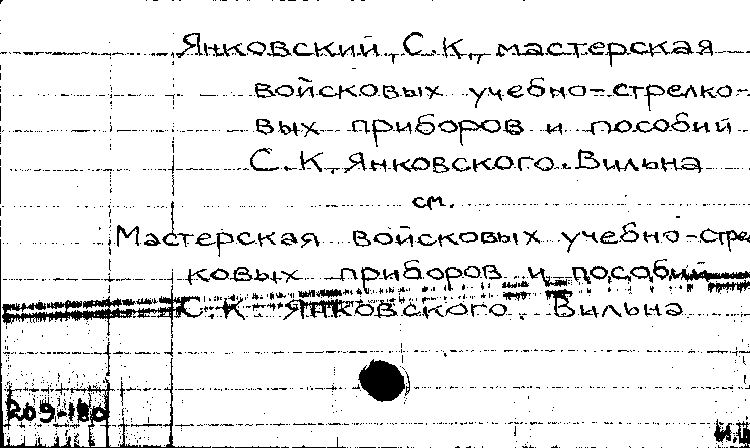 Янковский, С.К., мастерская
войсковых учебно-стрелко-
вых приборов и пособий
С.К. Янковского. Вильна
см.
Мастерская войсковых учебно-стрел
ковых приборов и пособий
С.К. Янковского. Вильна
209-180